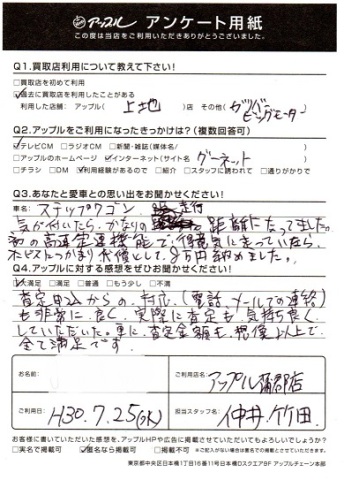 アップル アンケート用紙
この度は当店をご利用いただきありがとうございました。
Q1.買取店利用について教えて下さい!
□買取店を初めて利用
☑過去に買取店を利用したことがある
利用した店舗: アップル( 上地 )店 その他( ガリバー ビッグモーター
Q2.アップルをご利用になったきっかけは?(複数回答可)
☑テレビCM □ラジオCM □新聞・雑誌(媒体名/ )
□アップルのホームページ ☑インターネット(サイト名 グーネット )
□チラシ □DM ☑利用経験があるので □紹介 □スタッフに誘われて □通りがかりで
Q3.あなたと愛車との思い出をお聞かせください!
車名: ステップワゴン 走行
気が付いたら、かなりの 距離になってました。
初の高速定速機能で、得意気に走っていたら、
オービスにつかまり 代償として8万円納めました。
Q4.アップルに対する感想をぜひお聞かせください!
☑大満足 □満足 □普通 □もう少し □不満
査定申込からの対応、(電話、メールでの連絡)
も非常に良く、実際に査定も気持ち良く
していただいた。車に、査定金額も、想像以上で
全て満足です。
お名前:
ご利用店名: アップル蒲郡店
ご利用日: H30.7.25(水)
担当スタッフ名: 仲井、竹田
お客様に書いていただいた感想を、アップルHPや広告に掲載させていただいてもよろしいでしょうか?
□実名で掲載可 ☑匿名なら掲載可 □掲載不可 ※ご記入がない場合は匿名での掲載とさせていただきます。
東京都中央区日本橋1丁目16番11号日本橋DスクエアBF アップルチェーン本部